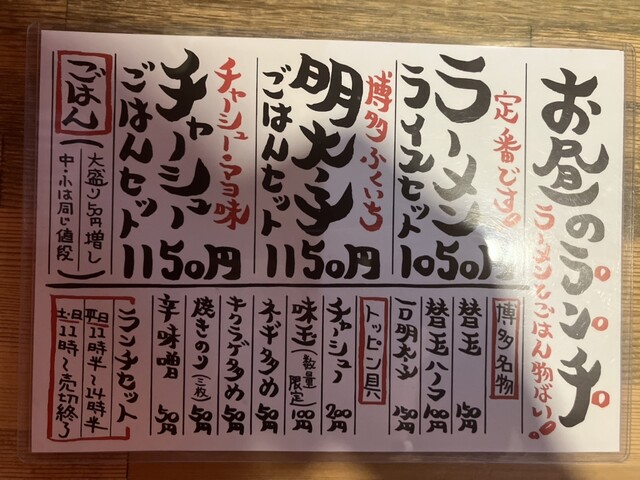 お昼のランチ
ラーメンとごはん物ばい!
定番です。
ラーメン
ライスセット 1050円
博多ふくいち
明太子
ごはんセット 1150円
チャーシュー・マヨ味
チャーシュー
ごはんセット 1150円
ごはん
大盛り50円増し
中・小は同じ値段
博多名物
替玉 150
替玉ハーフ 100円
一口明太子 150円
トッピン具
チャーシュー 200
味玉(数量限定) 100円
ネギ多め 50円
キクラゲ多め 50円
焼きのり(三枚) 50円
辛味噌 50円
ランチセット
平日11時半〜14時半
土日11時〜売切終了